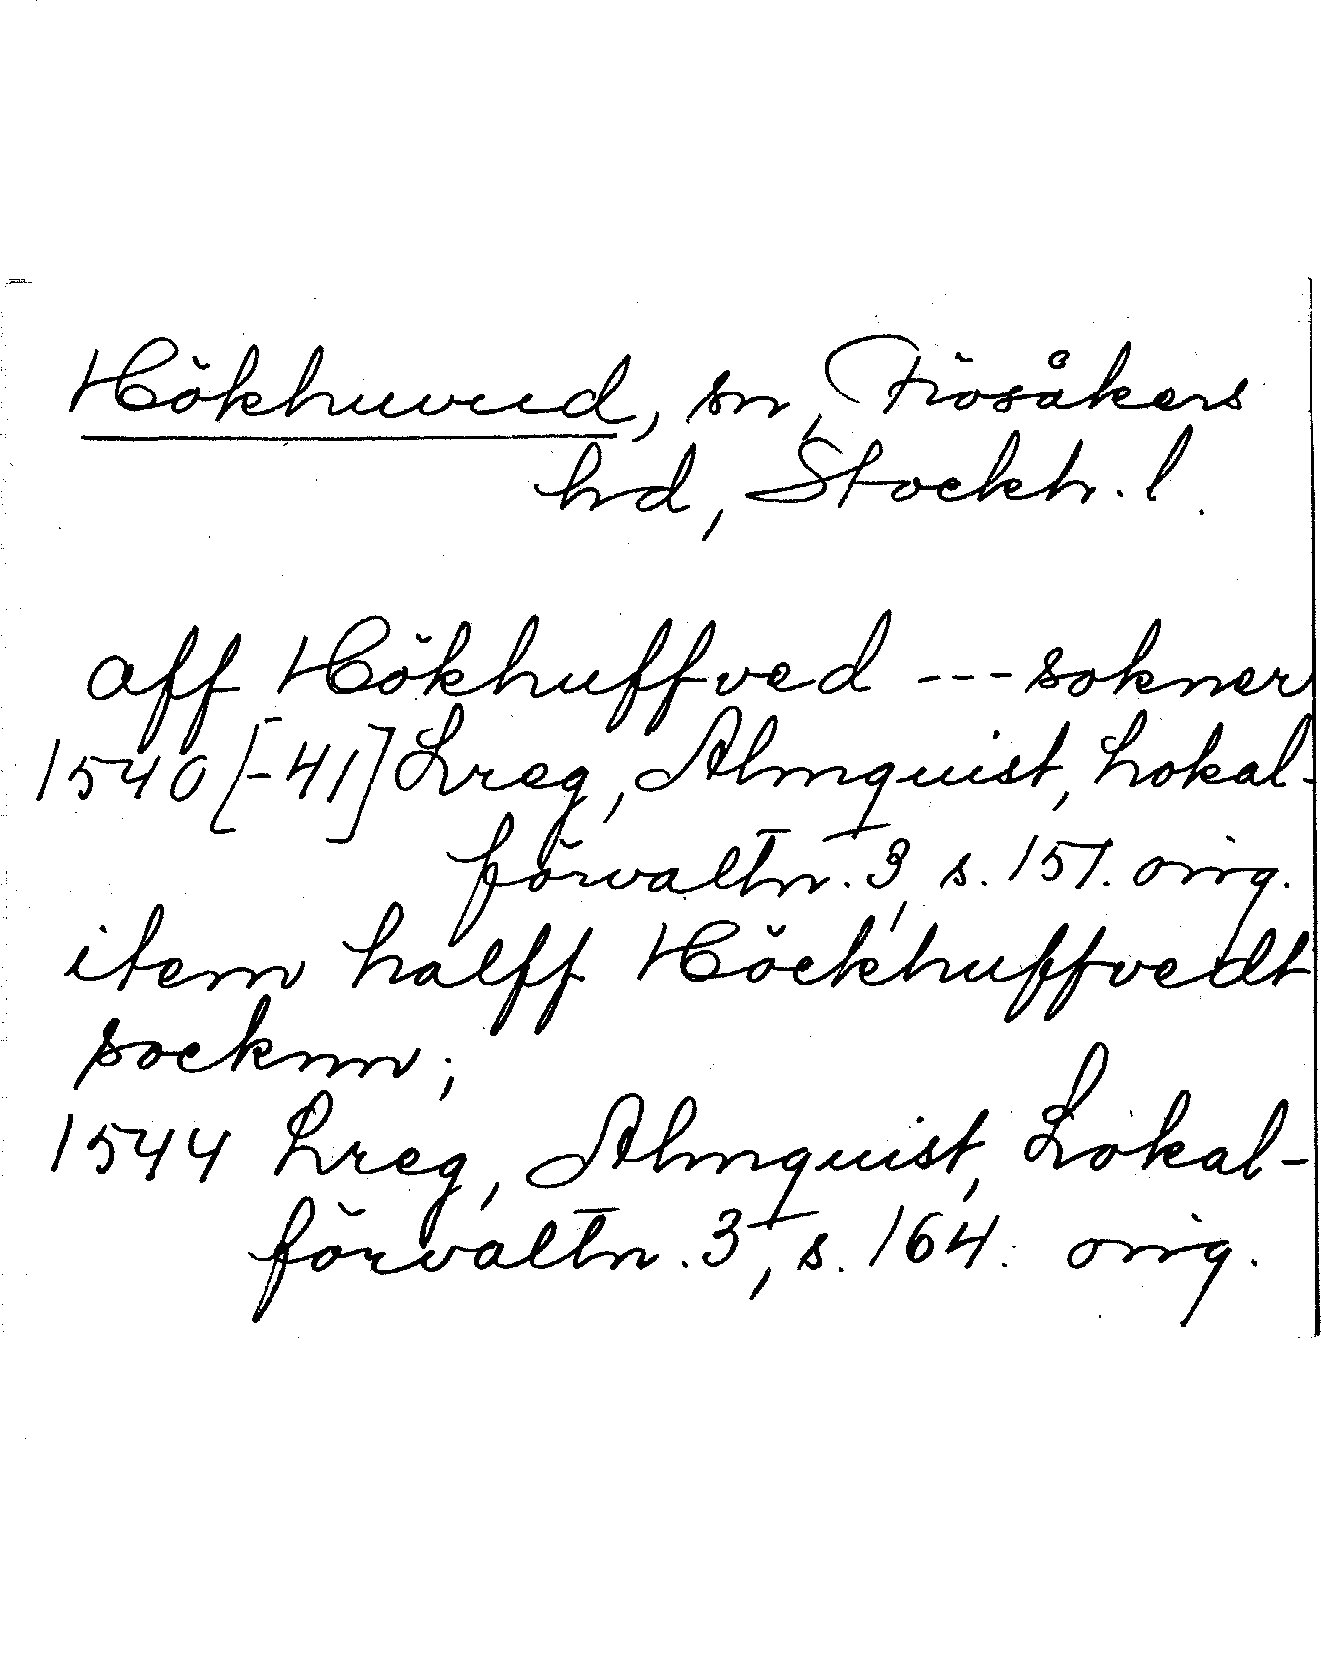 Hökhuvud, sn, Frösåkers
hd, Stockh. l.
aff Hökhuffved --- sokner
1540 [-41] Lreg, Almquist, Lokal-
förvaltn. 3, s. 151. orig.
item halff Höckhuffvedt
socknn;
1544 Lreg, Almquist, Lokal-
förvaltn. 3, s. 164. orig.